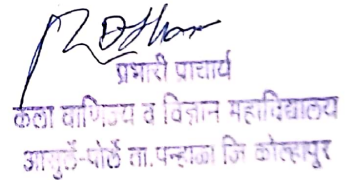 प्रभारी प्राचार्य
कला वाणिज्य व विज्ञान महाविद्यालय
आसुर्ले-पोर्ले ता. पन्हाळा जि कोल्हापुर